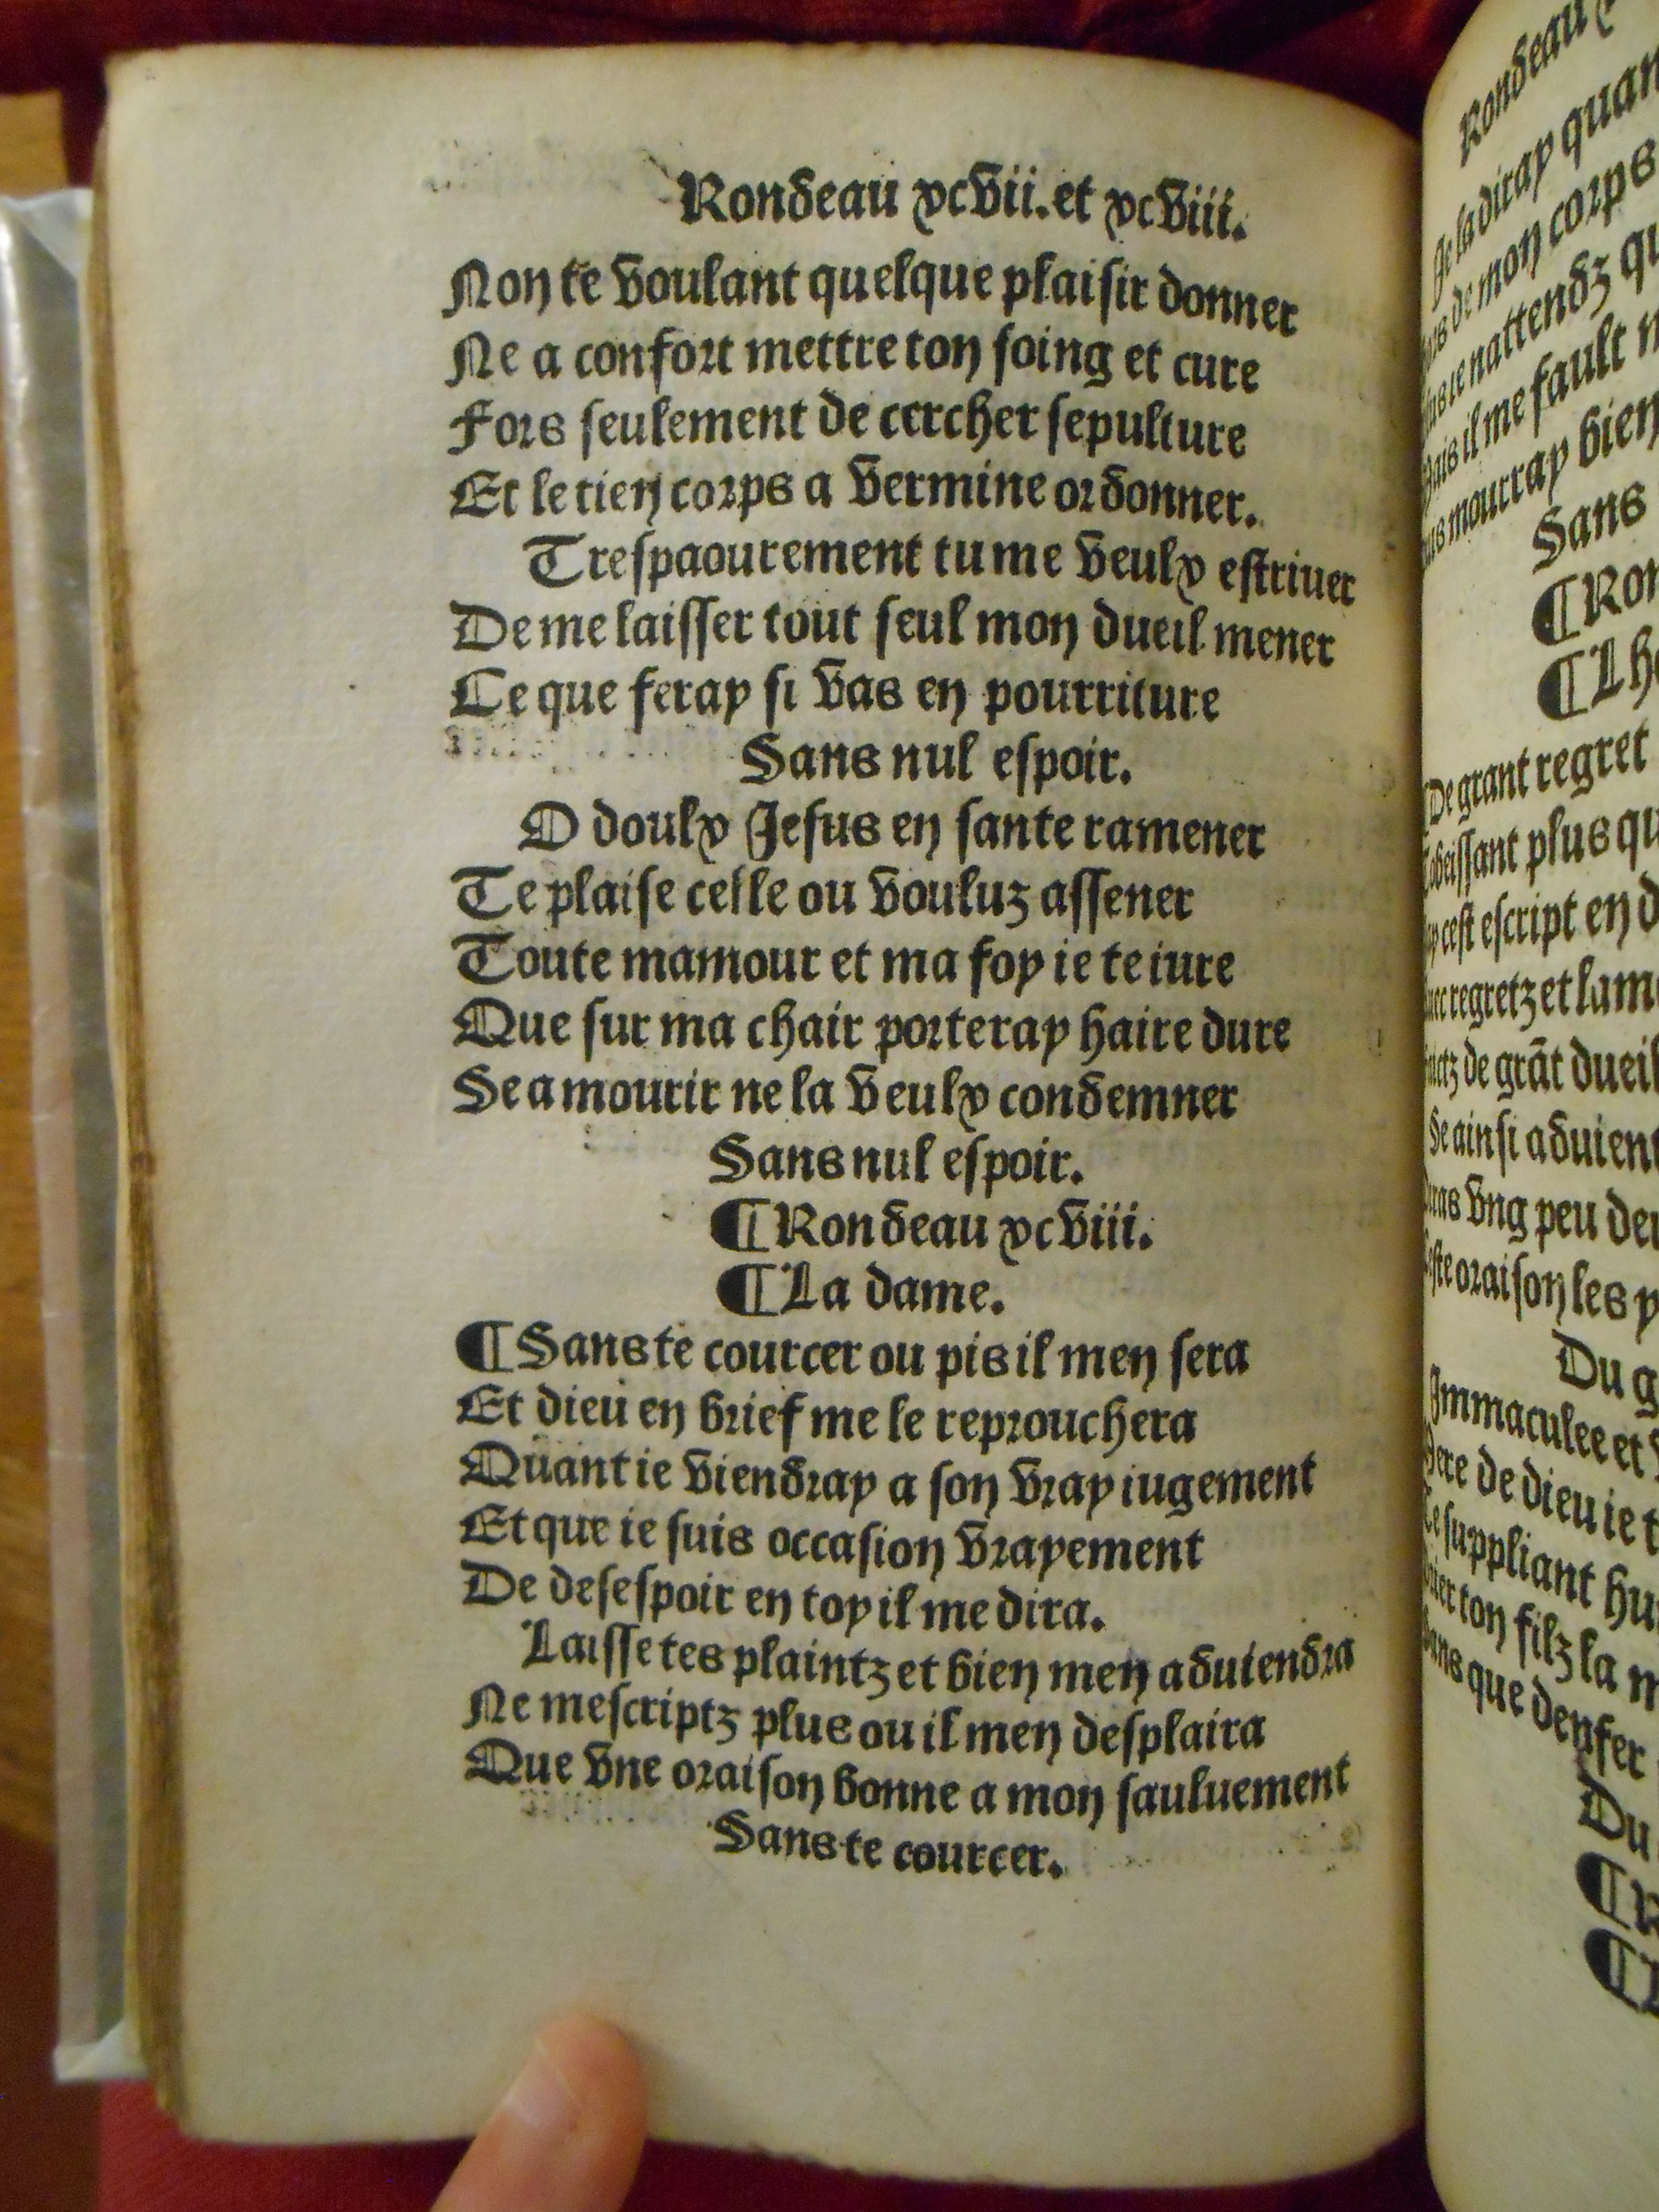 Rondeau xcvii. et xcviii.
Non te voulant quelque plaisir donner
Ne a confort mettre ton soing et cure
Fors seulement de cercher sepulture
Et le tien corps a vermine ordonner.
Trespaourement tu me veulx estriuer
De me laisser tout seul mon dueil mener
Ce que feray si vas en pourriture
Sans nul espoir.
O doulx Jesus en sante ramener
Te plaise celle ou vouluz assener
Toute mamour et ma foy ie te iure
Que sur ma chair porteray haire dure
Se a mourir ne la veulx condemner
Sans nul espoir.
¶ Rondeau xcviii.
¶ La dame.
¶ Sans te courcer ou pis il men sera
Et dieu en brief me le reprouchera
Quant ie viendray a son vray iugement
Et que ie suis occasion vrayement
De desespoir en toy il me dira.
Laisse tes plaintz et bien men aduiendra
Ne mescriptz plus ou il men desplaira
Que vne oraison bonne a mon sauluement
Sans te courcer.
Rondeau
Je la diray
de mon corps
nattendz
il me fault
mourray bien
Sans
¶
¶
De grant regret
plus
cest escript en
regretz et
de grāt dueil
Se ainsi aduient
vng peu
oraison les
Du
Immaculee et
de dieu ie
suppliant
ton filz la
que denfer
Du
¶
¶